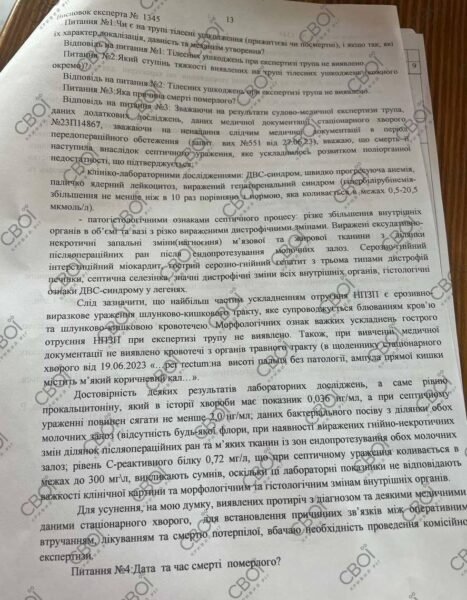 Висновок експерта № 1345 13
Питання №1:Чи є на трупі тілесні ушкодження (прижиттєві чи посмертні), і якщо так, які
їх характер,локалізація, давність та механізм утворення?
Відповідь на питання №1: Тілесних ушкоджень при експертизі трупа не виявлено.
Питання №2:Який ступінь тяжкості виявлених на трупі тілесних ушкоджень(кожного
окремо)?
Відповідь на питання №2: Тілесних ушкоджень при експертизі трупа не виявлено.
Питання №3:Яка причина смерті померлого?
Відповідь на питання №3: Зважаючи на результати судово-медичної експертизи трупа,
даних додаткових досліджень, даних медичної документації стаціонарного хворого
№23П14867, зважаючи на ненадання слідчим медичної документації в період
передопераційного обстеження (запит вих №551 від 27.06.23), вважаю, що смерть
наступила внаслідок септичного ураження, яке ускладнилось розвитком поліорганної
недостатності, що підтверджується:
- клініко-лабораторними дослідженнями: ДВС-синдром, швидко прогресуюча анемія,
паличко ядерний лейкоцитоз, виражений гепаторенальний синдром (гіпербілірубінемія-
збільшення не менше ніж в 10 раз порівняно з нормою, яка коливається в межах 0,5-20,5
мкмоль/л).
- патогістологічними ознаками септичного процесу: різке збільшення внутрішніх
органів в об'ємі та вазі з різко вираженими дистрофічними змінами. Виражені ексудативно-
некротичні запальні зміни(нагноєння) м'язової та жирової тканини з ділянки
післяопераційних ран після ендопротезування молочних залоз. Серозно-гнійний
інтерстиційний міокардит, гострий серозно-гнійний гепатит з трьома типами дистрофій
печінки, септична селезінка, значні дистрофічні зміни всіх внутрішніх органів, гістологічні
ознаки ДВС-синдрому у легенях.
Слід зазначити, що найбільш частим ускладненням отруєння НПЗП є ерозивно-
виразкове ураження шлунково-кишкового тракту, яке супроводжується блюванням кров'ю
та шлунково-кишковою кровотечею. Морфологічних ознак важких ускладнень гострого
отруєння НПЗП при експертизі трупу не виявлено. Також, при вивченні медичної
документації не виявлено кровотечі з органів травного тракту (в щоденнику стаціонарного
хворого від 19.06.2023 «…per rectum:на висоті пальця без патології, ампула прямої кишки
містить м'який коричневий кал…».
Достовірність деяких результатів лабораторних досліджень, а саме рівню
прокальцитоніну, який в історії хвороби має показник 0,036 нг/мл, а при септичному
ураженні повинен сягати не менше 2,0 нг/мл; даних бактеріального посіву з ділянки обох
молочних залоз (відсутність будь-якої флори, при наявності виражених гнійно-некротичних
змін ділянок післяопераційних ран та м'яких тканин із зон ендопротезування обох молочних
залоз; рівень С-реактивного білку 0,72 мг/л, що при септичному ураження коливається в
межах до 300 мг/л, викликають сумнів, оскільки ці лабораторні показники не відповідають
важкості клінічної картини та морфологічним та гістологічним змінам внутрішніх органів.
Для усунення, на мою думку, виявлених протиріч з діагнозом та деякими медичними
даними стаціонарного хворого, для встановлення причинних зв'язків між оперативним
втручанням, лікуванням та смертю потерпілої, вбачаю необхідність проведення комісійної
експертизи.
Питання №4:Дата та час смерті померлого?
СВОЇ